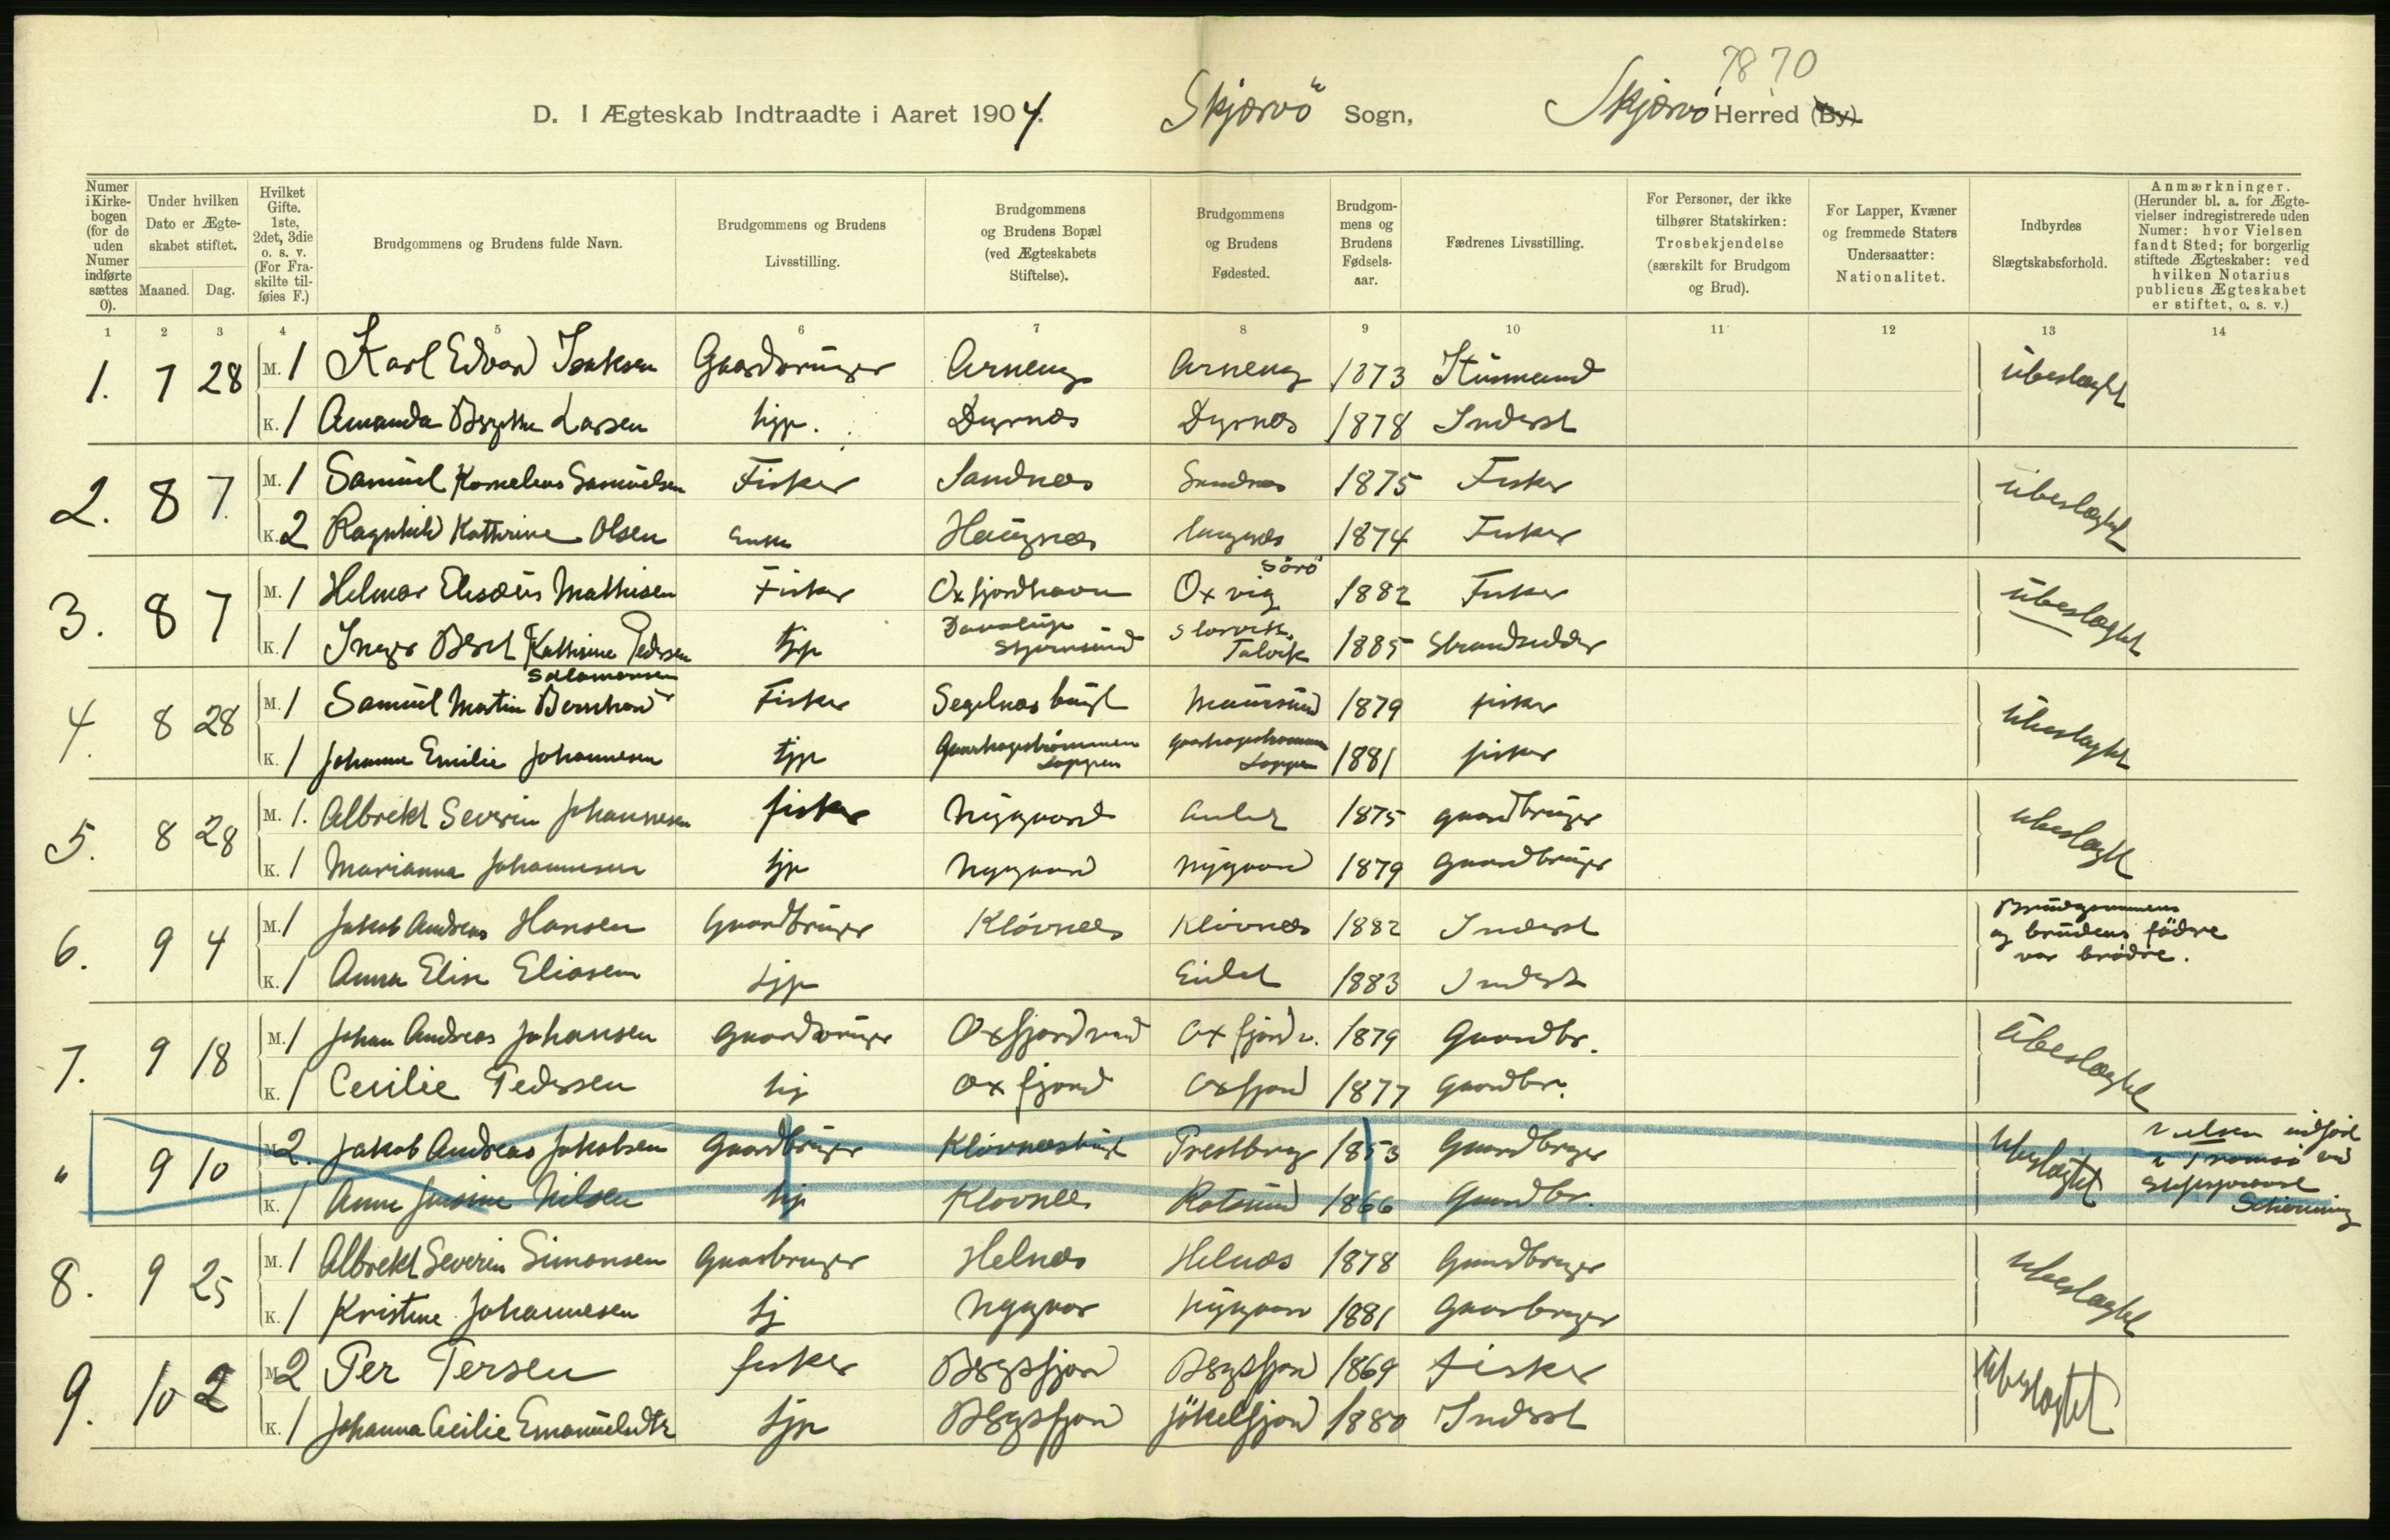 7870
D. I Ægteskab Indtraadte i Aaret 1904. Skjærvö Sogn, Skjærvö Herred (By).
Numer i Kirkebogen (for de uden Numer indførte sættes 0).
Under hvilken Dato er Ægteskabet stiftet.
Maaned. Dag.
Hvilket Gifte. 1ste, 2det, 3die o. s. v. (For Fraskilte tilføies F.)
Brudgommens og Brudens fulde Navn.
Brudgommens og Brudens Livsstilling.
Brudgommens og Brudens Bopæl (ved Ægteskabets Stiftelse).
Brudgommens og Brudens Fødested.
Brudgommens og Brudens Fødselsaar.
Fædrenes Livsstilling.
For Personer, der ikke tilhører Statskirken: Trosbekjendelse (særskilt for Brudgom og Brud).
For Lapper, Kvæner og fremmede Staters Undersaatter: Nationalitet.
Indbyrdes Slægtskabsforhold.
Anmærkninger. (Herunder bl. a. for Ægtevielser indregistrerede uden Numer: hvor Vielsen fandt Sted; for borgerlig stiftede Ægteskaber: ved hvilken Notarius publicus Ægteskabet er stiftet, o. s. v.)
1 2 3 4 5 6 7 8 9 10 11 12 13 14
1. 7 28 M. 1 Karl Edvard Isaksen Gaardbruger Arneng Arneng 1873 Husmand übeslægtet
K. 1 Amanda Bergitte Larsen tjp. Dyrnæs Dyrnæs 1878 Inderst
2. 8 7. M. 1 Samuel Kornelius Samuelsen Fisker Sandnæs Sandnæs 1875 Fisker übeslægtet
K. 2 Ragnhild Kathrine Olsen Enke Haugnæs Haugnæs 1874 Fisker
3. 8 7 M. 1 Helmer Elisæus Mathisen Fisker Oxfjordhavn Oxvig Sörö 1882 Fisker übeslægtet
K. 1 Inger Berit Kathrine Pedersen tjp Stjernsund Storvik Talvik 1885 Strandsidder
4. 8 28 M. 1 Samuel Martin Bernhard Salamonsen Fisker Segelnæs Maursund 1879 fisker übeslægtet
K. 1 Johanne Emilie Johannesen tjp Loppen Loppen 1881 fisker
5. 8 28 M. 1. Albrekt Severin Johannesen fisker Nygaard 1875 gaardbruger ubeslægtet
K. 1 Marianna Johannesen tjp Nygaard Nygaard 1879 Gaardbruger
6. 9 4 M. 1 Jakob Andreas Hansen Gaardbruger Klövnæs Klövnæs 1882 Inderst Brudgommens og brudens fädre var brödre.
K. 1 Anna Elise Eliasen tjp Eidet 1883 Inderst
7. 9 18 M. 1 Johan Andreas Johansen Gaardbruger Oxfjordvand Oxfjordv. 1879 Gaardbr. Ubeslægtet
K. 1 Cecilie Pedersen tjp Oxfjord Oxfjord 1877 Gaardbr.
" 9 10 M. 2. Jakob Andreas Jakobsen Gaardbruger Klövnæs Prestberg 1853 Gaardbruger Ubeslægtet Vielsen udfört i Tromsö ved Stiftsprovst Schiönning
K. 1 Anne Nilsen tjp Klovnæs Rotsund 1866 Gaardbr.
8. 9 25 M. 1 Albrekt Severin Simonsen Gaardbruger Helnæs Helnæs 1878 Gaardbruger Ubeslægtet
K. 1 Kristine Johannesen tj Nygaard Nygaard 1881 Gaardbruger
9. 10 2 M. 2 Per Persen fisker Bergsfjord Bergsfjord 1869 fisker Ubeslægtet
K. 1 Johanna Cecilie Emanuelsdtr tjp Bergsfjord Jökelfjord 1880 Inderst